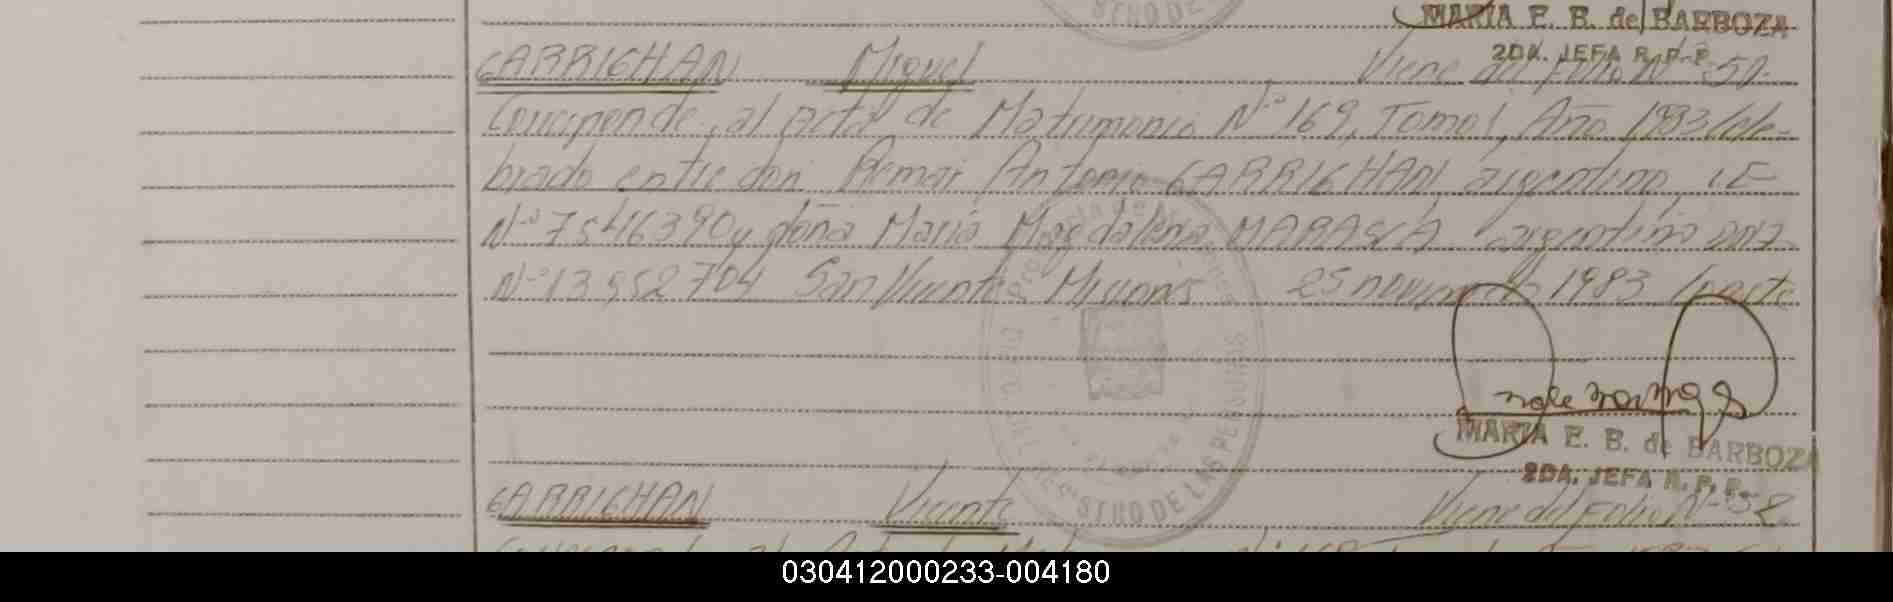 MARIA E. B. de BARBOZA
2DA. JEFA R. P. P.
GARRIGHAN Miguel Viene del Folio Nº 50.
Corresponde al Acta de Matrimonio Nº 169, Tomo 1, Año 1983 Cele-
brado entre don Antonio GARRIGHAN argentino,
Nº 7546390 y doña María Magdalena argentina DNI
Nº 13952704 San Vicente Misiones 25 noviembre 1983
MARIA E. B. de BARBOZA
2DA. JEFA R. P. P.
GARRIGHAN Vicente Viene del Folio Nº 58
REGISTRO DE LAS PERSONAS
030412000233-004180